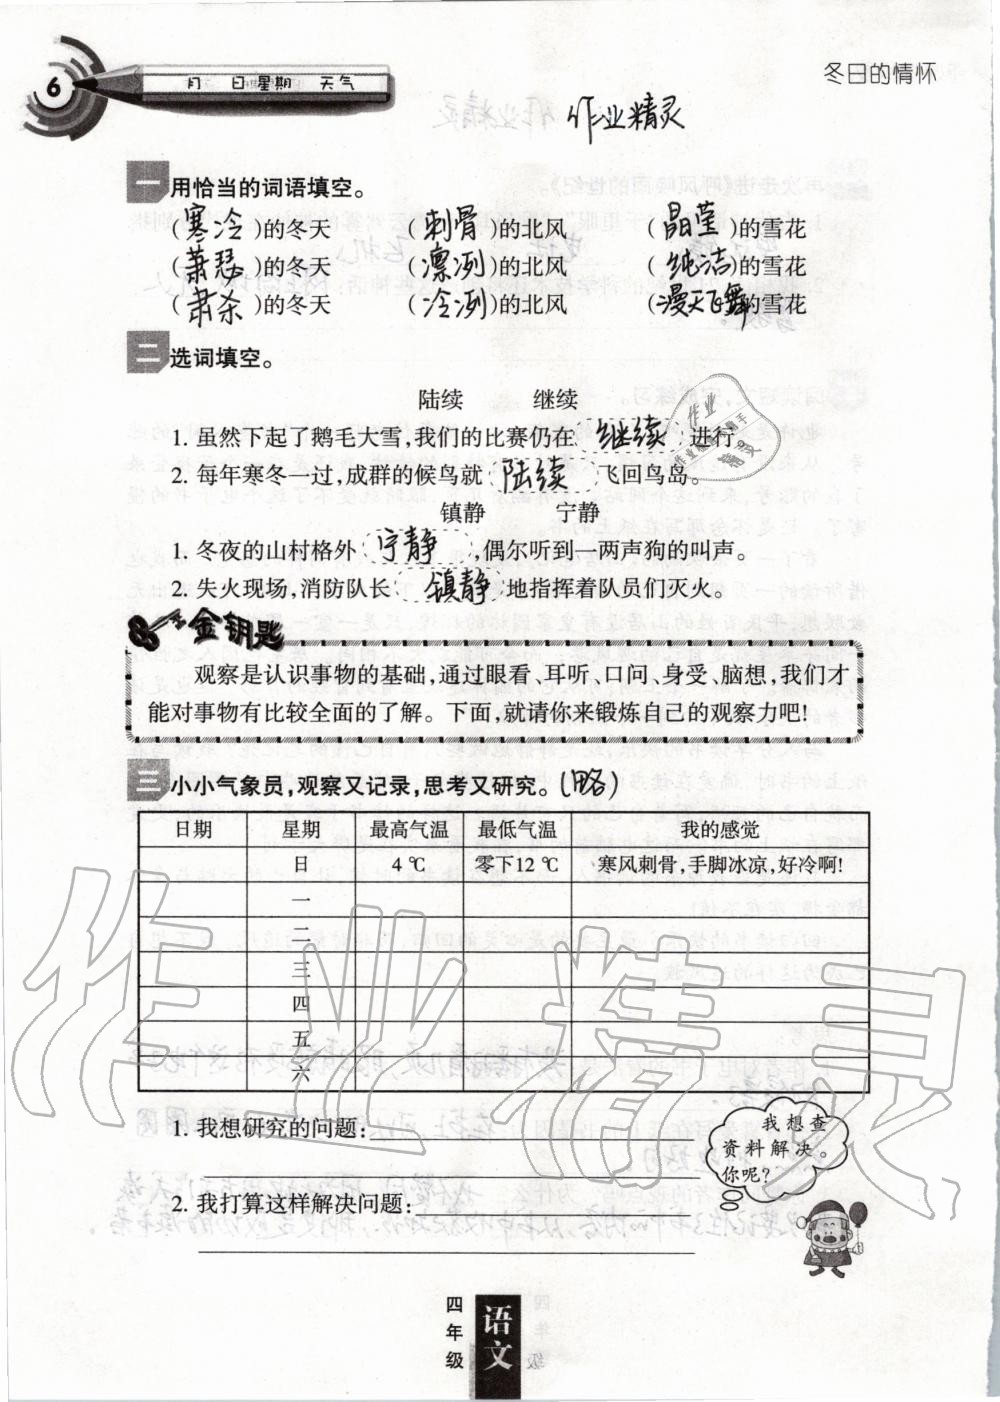 6 月 日 星期 天气
冬日的情怀
作业精灵
一 用恰当的词语填空。
(寒冷)的冬天 (刺骨)的北风 (晶莹)的雪花
(萧瑟)的冬天 (凛冽)的北风 (纯洁)的雪花
(肃杀)的冬天 (冷冽)的北风 (漫天飞舞)的雪花
二 选词填空。
陆续 继续
1. 虽然下起了鹅毛大雪,我们的比赛仍在 继续 进行。
2. 每年寒冬一过,成群的候鸟就 陆续 飞回鸟岛。
镇静 宁静
1. 冬夜的山村格外 宁静 ,偶尔听到一两声狗的叫声。
2. 失火现场,消防队长 镇静 地指挥着队员们灭火。
金钥匙
观察是认识事物的基础,通过眼看、耳听、口问、身受、脑想,我们才
能对事物有比较全面的了解。下面,就请你来锻炼自己的观察力吧!
三 小小气象员,观察又记录,思考又研究。(略)
日期 星期 最高气温 最低气温 我的感觉
日 4 ℃ 零下12 ℃ 寒风刺骨,手脚冰凉,好冷啊!
一
二
三
四
五
六
作业精灵
1. 我想研究的问题:
2. 我打算这样解决问题:
我想查
资料解决。
你呢?
四年级 语文